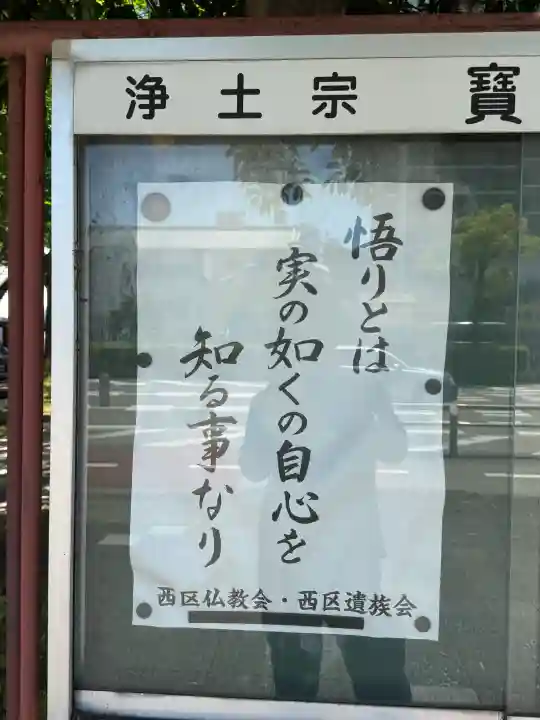 浄土宗 寶
悟りとは
実の如くの自心を
知る事なり
西区仏教会・西区遺族会